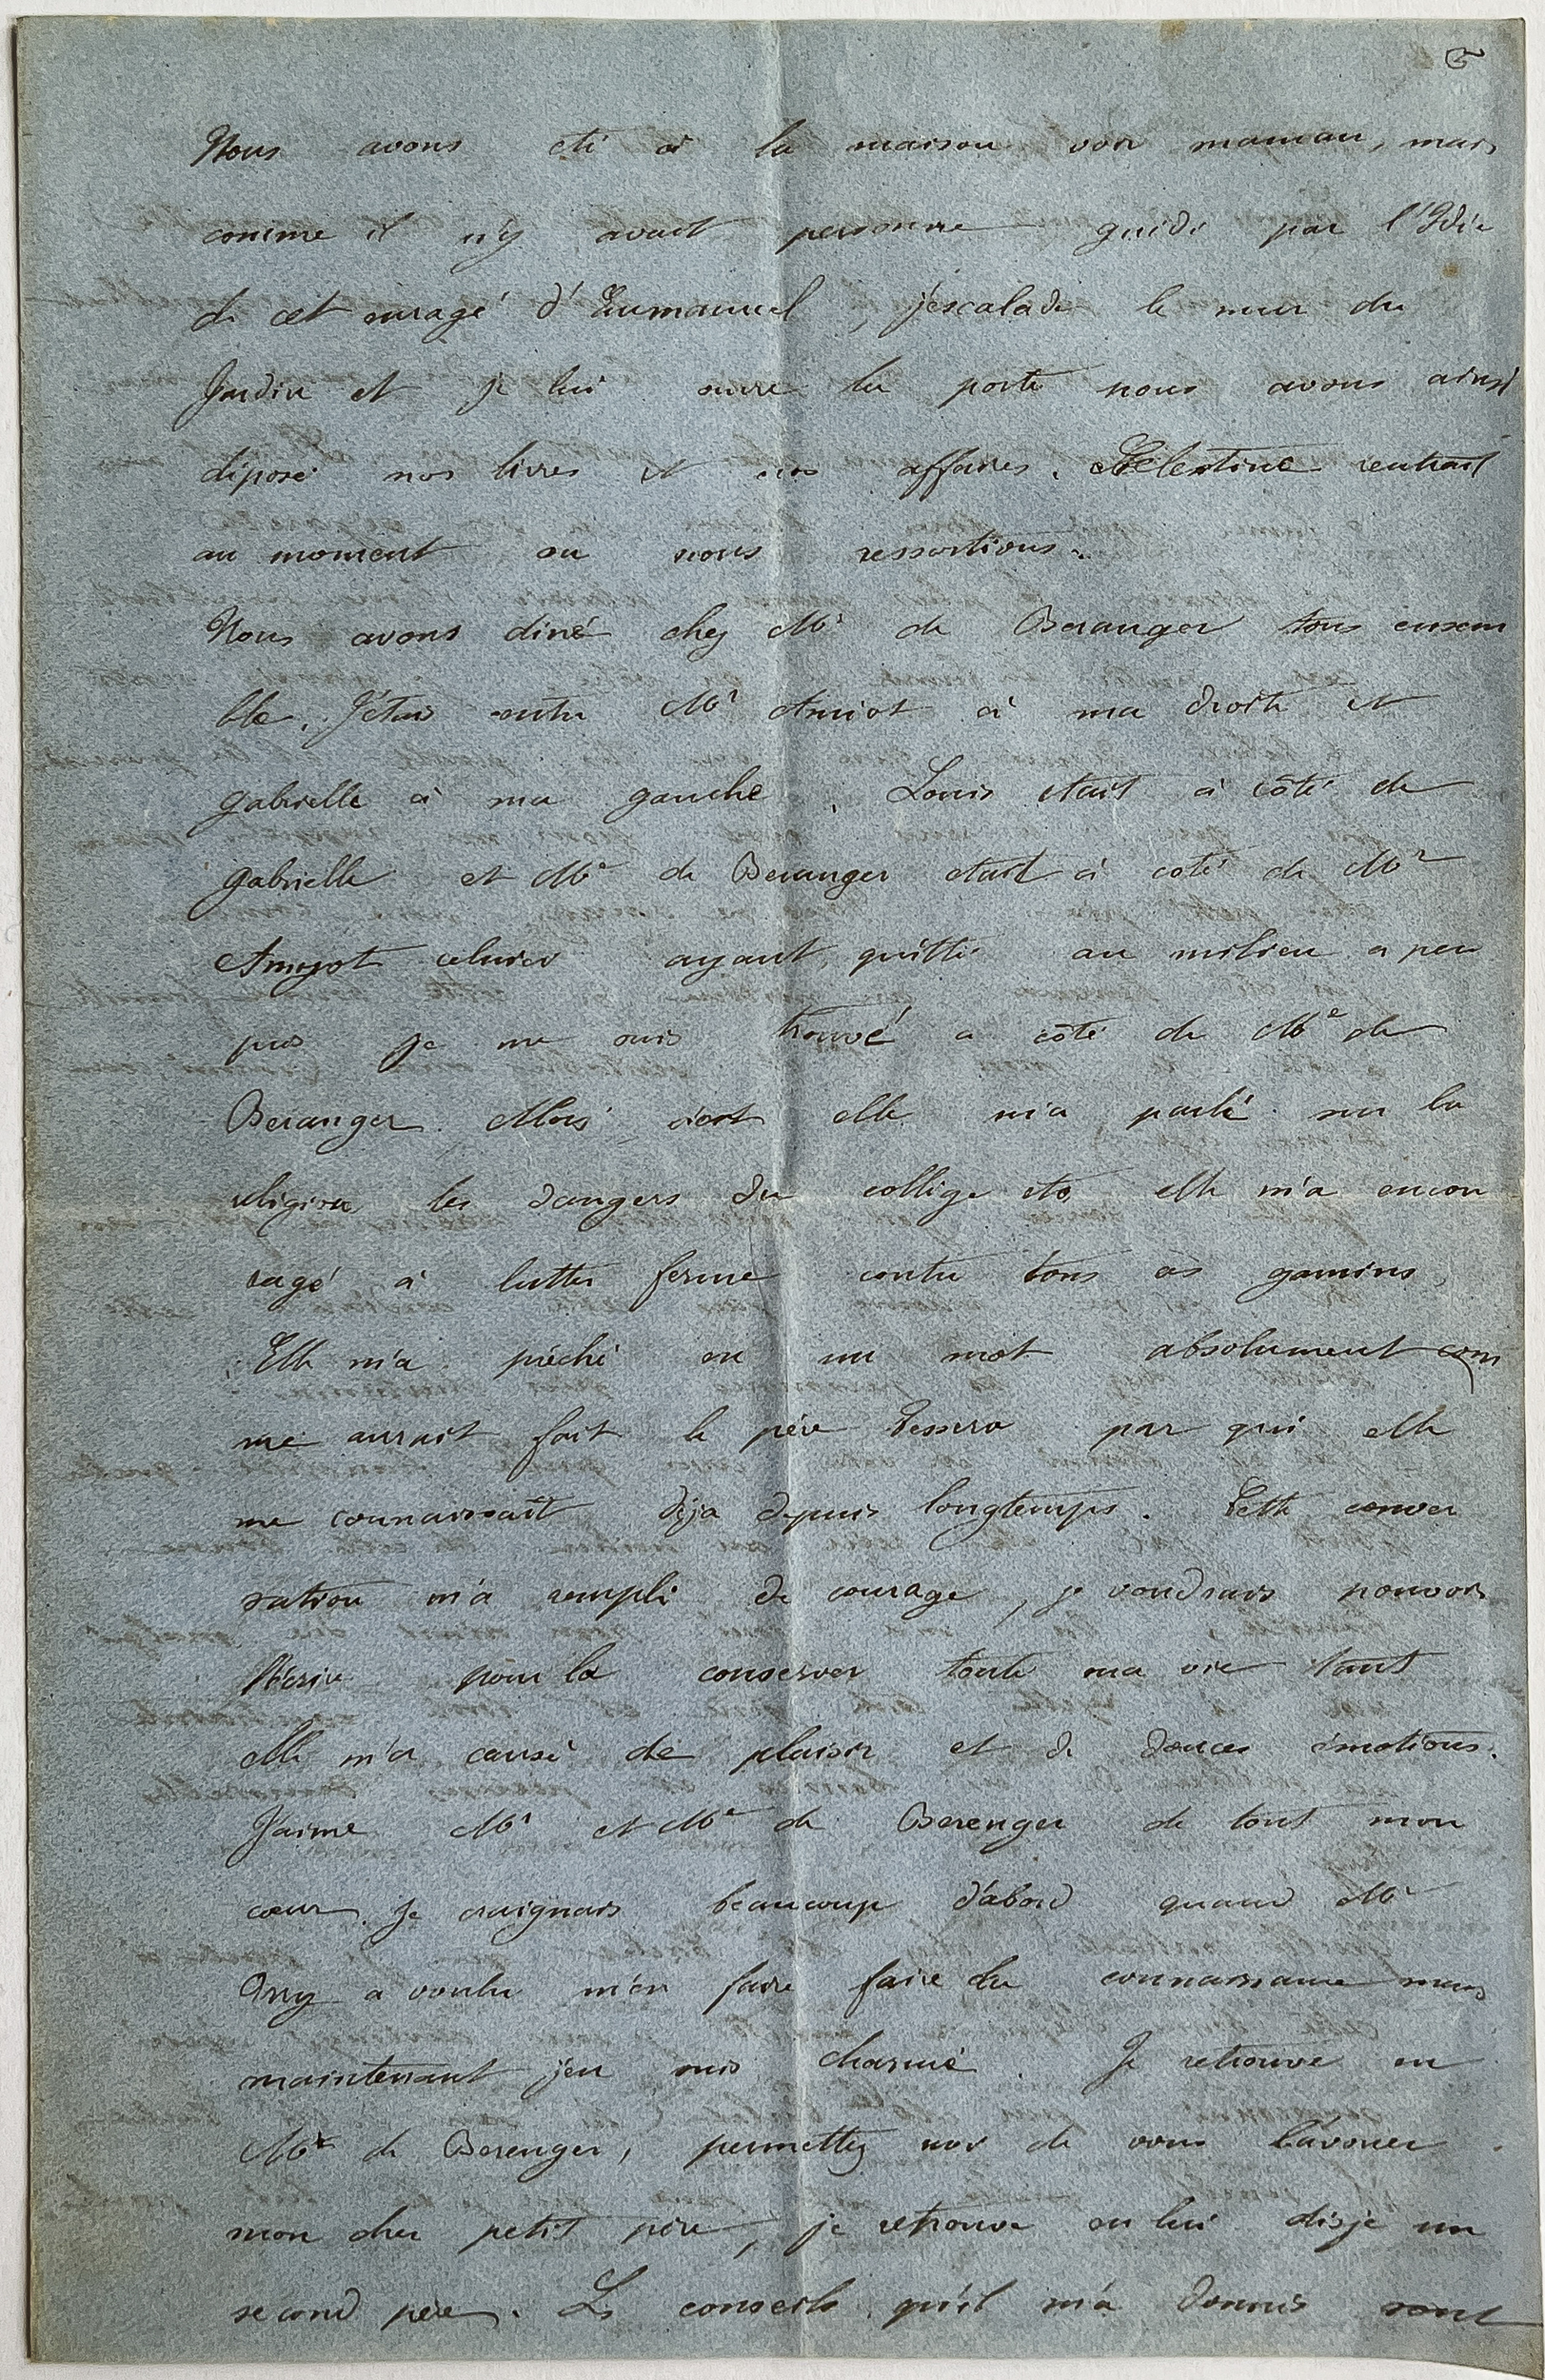 Nous avons été à la maison voir maman, mais
comme il n'y avait personne guidé par l'Idée
de cet enragé d'Emmanuel, j'escalade le mur du
Jardin et je lui ouvre la porte nous avons ainsi
déposé nos livres et nos affaires. Célestine rentrait
au moment ou nous ressortions.
Nous avons diné chez Mr de Beranger tous ensem
ble. J'étais entre Mr Amiot à ma droite et
Gabrielle à ma gauche. Louis était à côté de
Gabrielle et Me de Beranger était à coté de Mr
Amyot celuici ayant quitté au milieu a peu
près je me suis trouvé a côté de Me de
Beranger. Alors c'est elle m'a parlé sur la
religion les dangers du collège etc elle m'a encou
ragé à lutter ferme contre tous ces gamins,
Elle m'a prêché en un mot absolument com
me aurait fait le père par qui elle
me connaissait déja depuis longtemps. Cette conver
sation m'a rempli de courage, je voudrais pouvoir
l'écrire pour la conserver toute ma vie tant
elle m'a causé de plaisir et de douces émotions.
J'aime Mr et Me de Berenger de tout mon
cœur. Je craignais beaucoup d'abord quand Mr
a voulu m'en faire faire la connaissance mais
maintenant j'en suis charmé. Je retrouve en
Mr de Berenger, permettez moi de vous l'avouer
mon cher petit père, je retrouve en lui disje un
second père. Les conseils qu'il m'a donnés sont